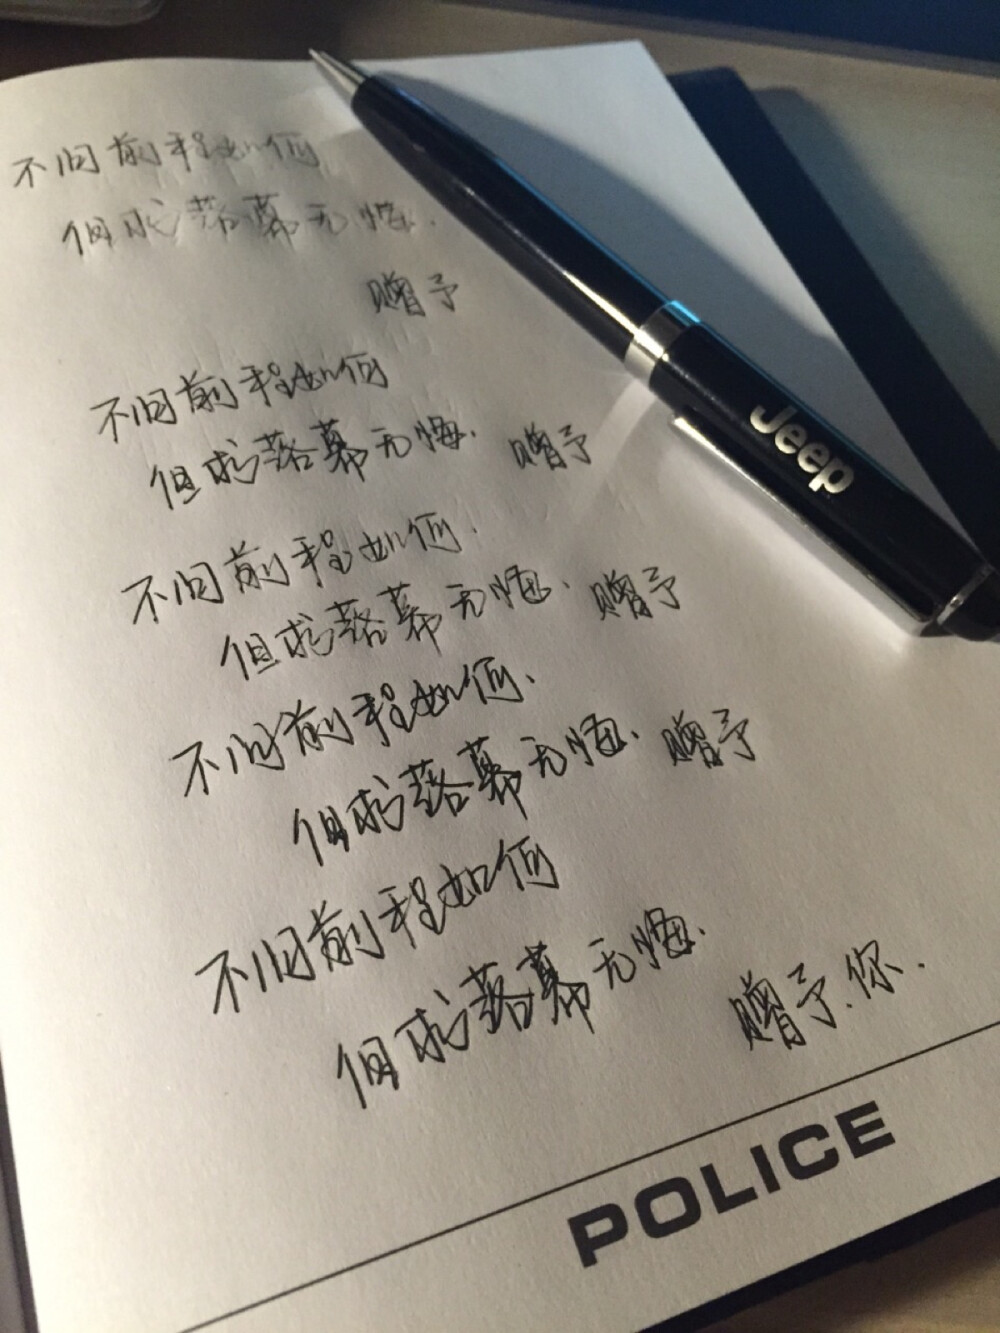 不问前程如何
但求落幕无悔.
赠予
不问前程如何
但求落幕无悔. 赠予
不问前程如何.
但求落幕无悔. 赠予
不问前程如何.
但求落幕无悔. 赠予
不问前程如何
但求落幕无悔.
赠予.你.
Jeep
POLICE